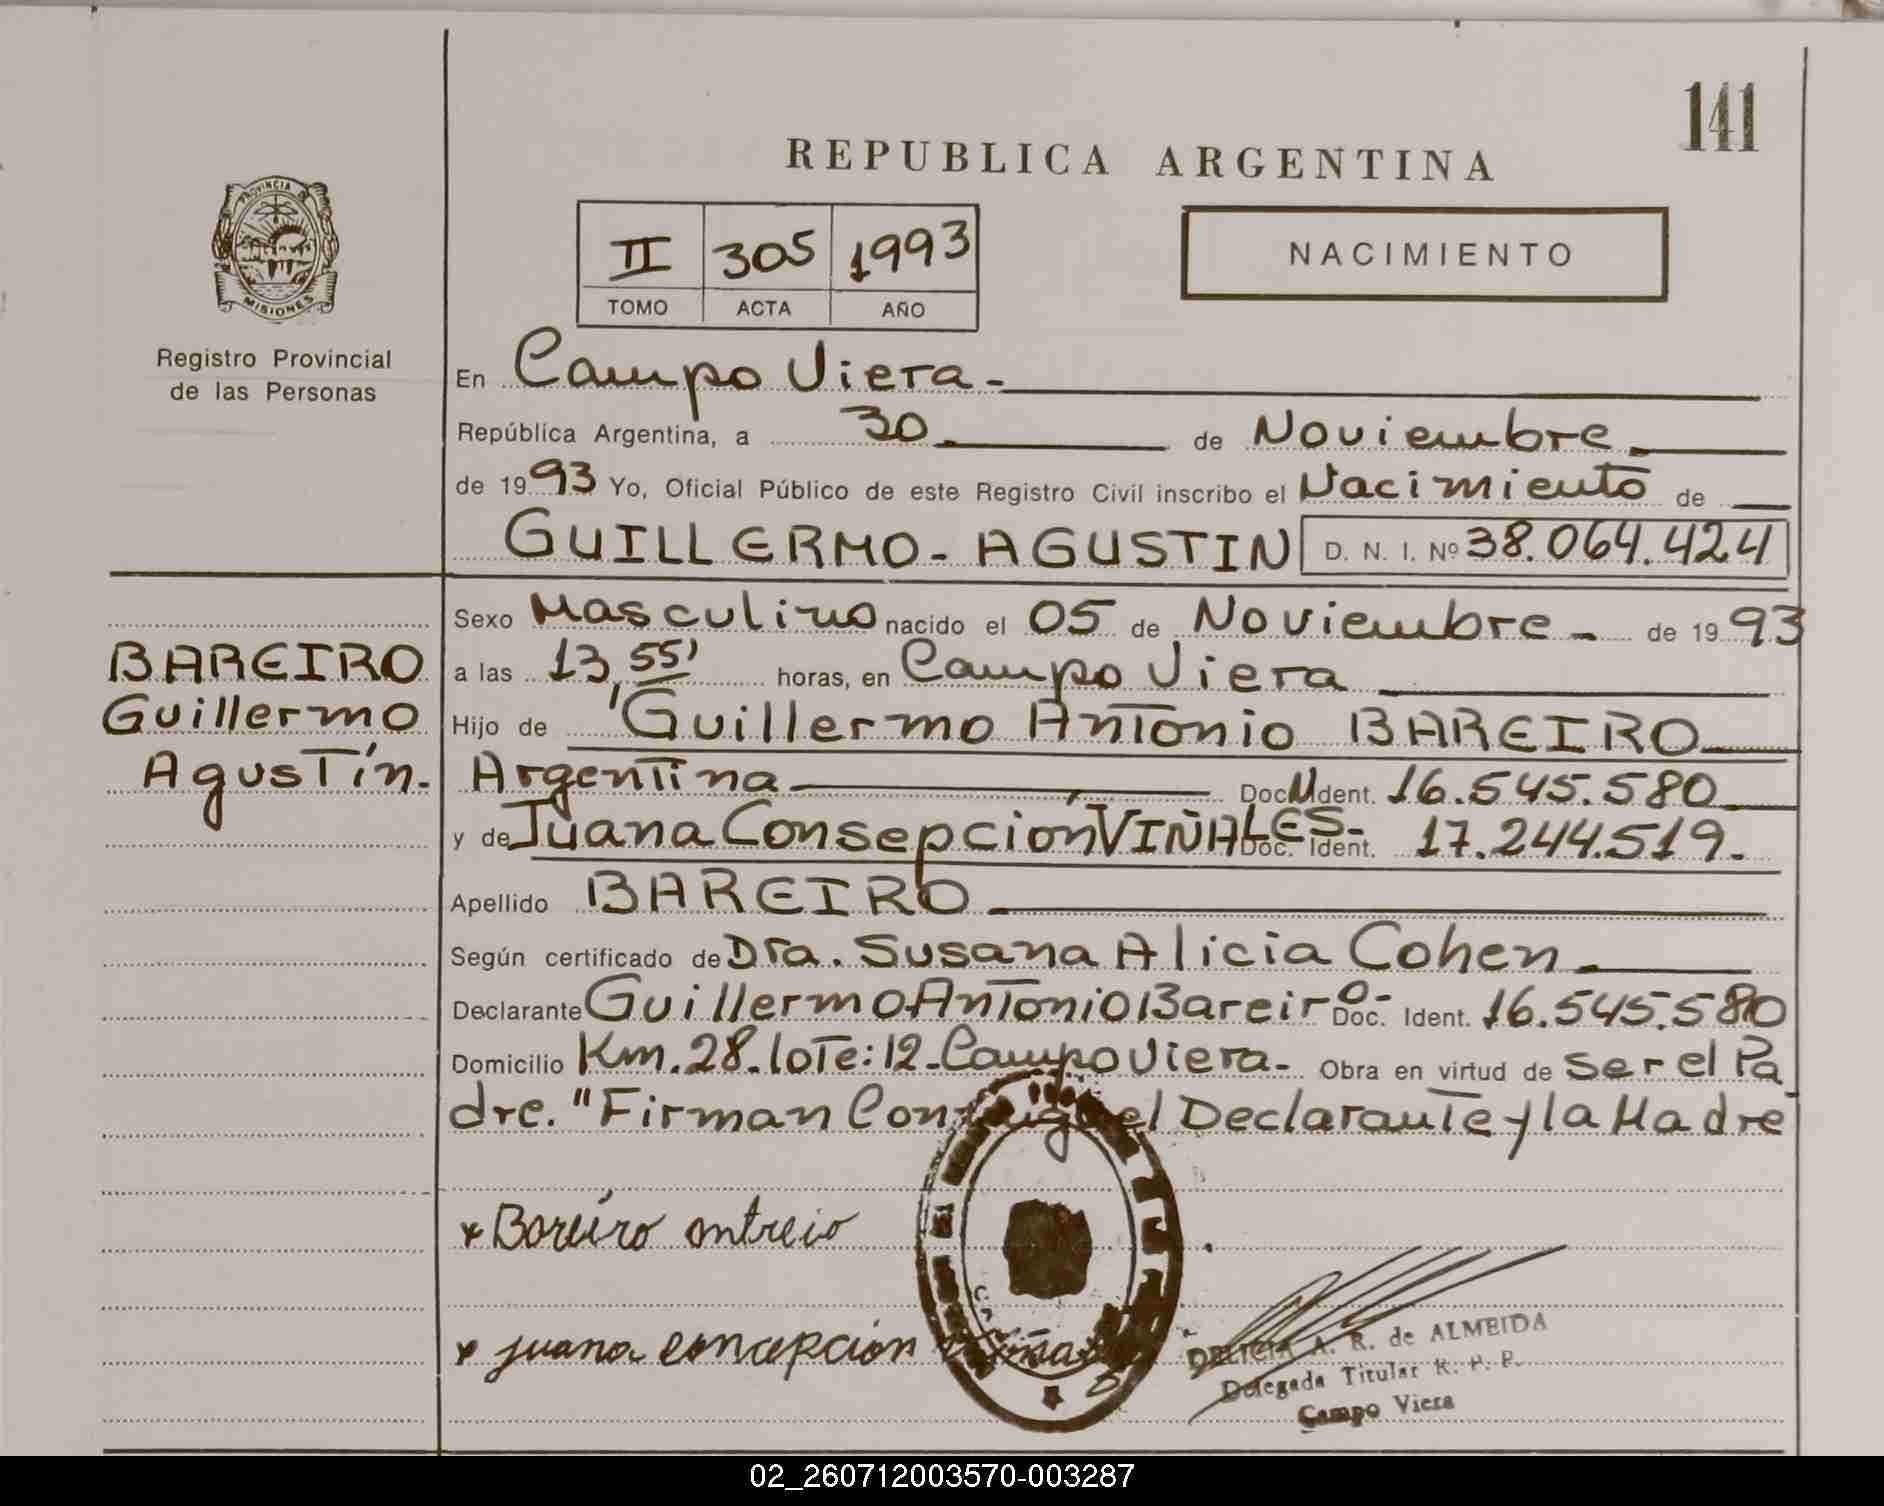 141
REPUBLICA ARGENTINA
PROVINCIA DE
MISIONES
Registro Provincial
de las Personas
II 305 1993
TOMO ACTA AÑO
NACIMIENTO
En Campo Viera-
República Argentina, a 30 de Noviembre
de 1993 Yo, Oficial Público de este Registro Civil inscribo el Nacimiento de
GUILLERMO-AGUSTIN D. N. I. Nº 38.064.424
BAREIRO
Guillermo
Agustín.
Sexo Masculino nacido el 05 de Noviembre- de 1993
a las 13,55' horas, en Campo Viera
Hijo de Guillermo Antonio BAREIRO
Argentina Doc. Ident. 16.545.580
y de Juana Consepción VIÑALES- Doc. Ident. 17.244.519.-
Apellido BAREIRO
Según certificado de Dra. Susana Alicia Cohen-
Declarante Guillermo Antonio Bareiro- Doc. Ident. 16.545.580
Domicilio Km.28-lote:12-Campo Viera- Obra en virtud de ser el Pa
dre. "Firman Conmigo el Declarante y la Madre
x Bareiro
x juana concepcion
DELICIA A. R. de ALMEIDA
Delegada Titular R. P. P.
Campo Viera
02_260712003570-003287